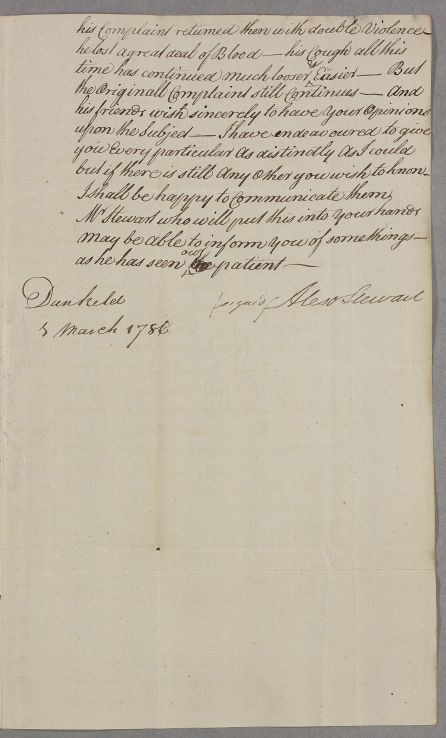 his Complaint returned then with double Violence
he lost a great deal of Blood — his Cough all this
time has continued much looser & Easier — But
the Originall Complaint still Continues — And
his friends wish sincerely to have your Opinions
upon the Subject — I have endeavoured to give
you Every particular As distinctly As I could
but if there is still Any Other you wish to know
I shall be happy to Communicate them,
Mr Stewart who will put this into Your hands
may be able to inform You of some things —
as he has seen our patient —
Dunkeld (signed) Alexr Stewart
March 1786.